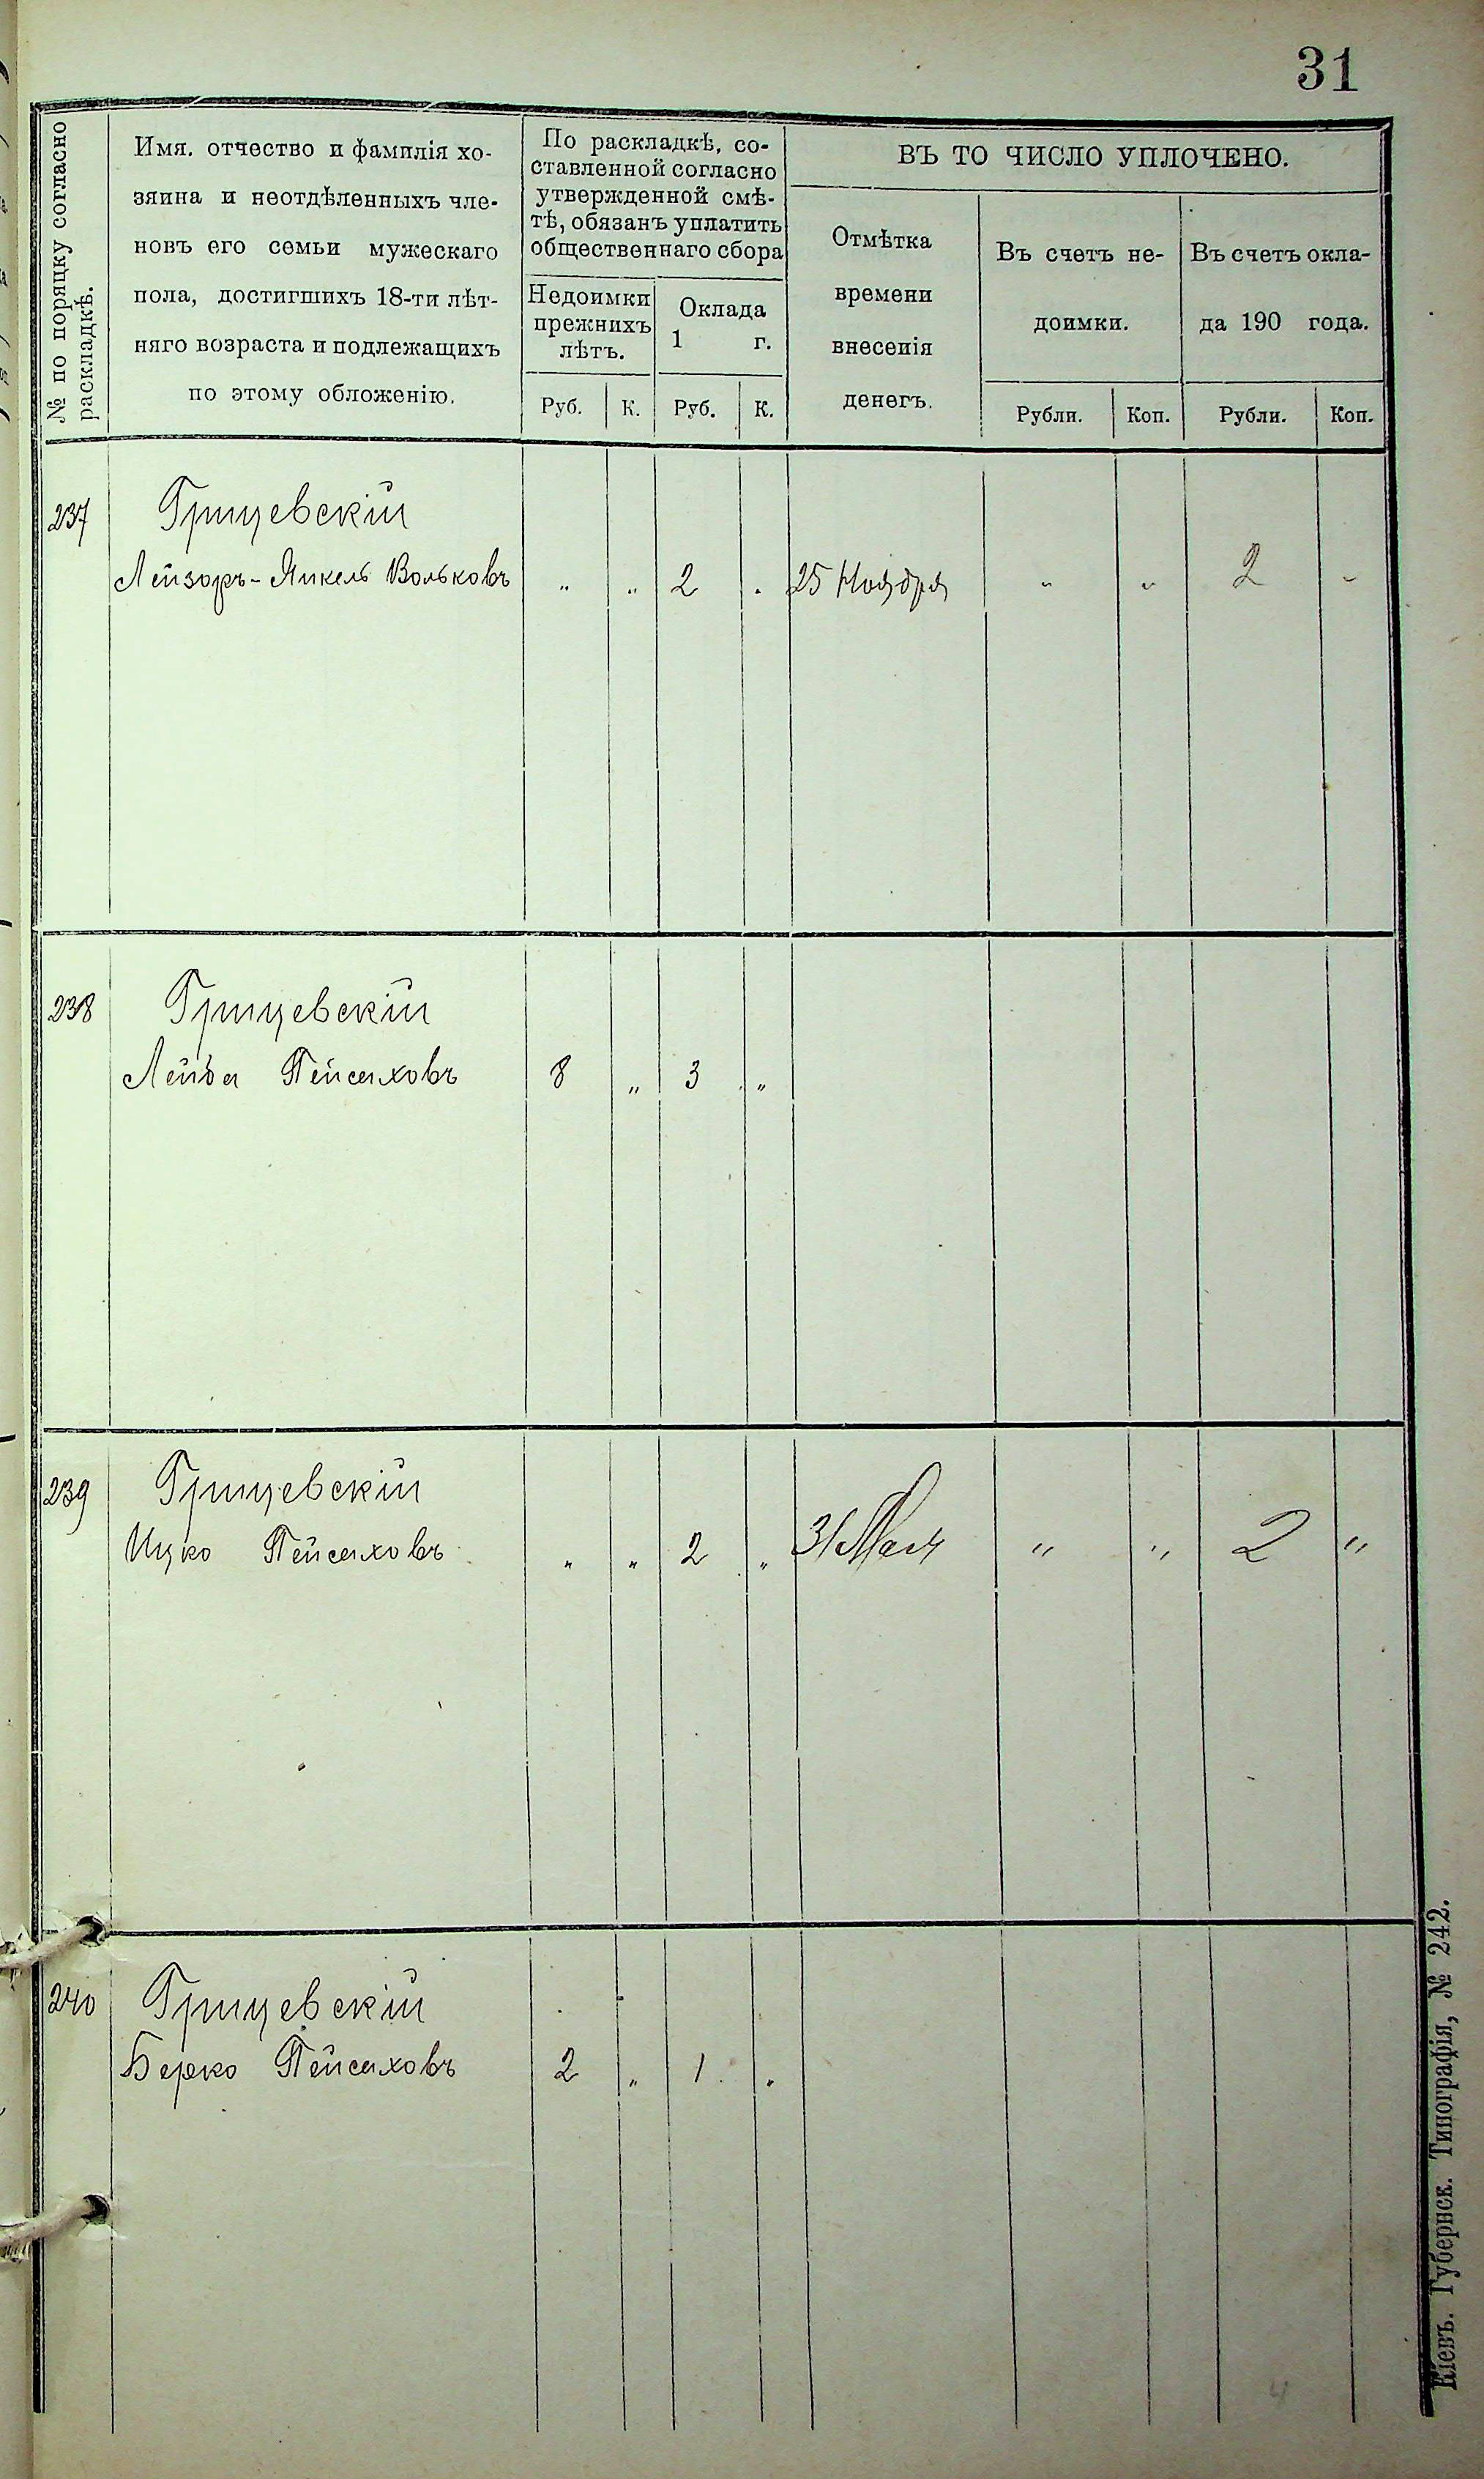 31
№ по поряцку согласно
раскладкѣ.
Имя. отчество и фамилія хо-
зяина и неотдѣленныхъ чле-
новъ его семьи мужескаго
пола, достигшихъ 18-ти лѣт-
няго возраста и подлежащихъ
по этому обложенію.
По раскладкѣ, со-
ставленной согласно
утвержденной смѣ-
тѣ, обязанъ уплатить
общественнаго сбора
Недоимки
прежнихъ
лѣтъ.
Оклада
1 г.
Руб. К. Руб. К.
ВЪ ТО ЧИСЛО УПЛОЧЕНО.
Отмѣтка
времени
внесенія
денегъ.
Въ счетъ не-
доимки.
Въ счетъ окла-
да 190 года.
Рубли. Коп. Рубли. Коп.
237 Грицевскій
Лейзоръ-Янкель Вольковъ „ „ 2 „ 25 Ноября „ „ 2 „
238 Грицевскій
Лейба Пейсаховъ 8 „ 3 „
239 Грицевскій
Ицко Пейсаховъ „ „ 2 „ 31 Мая „ „ 2 „
240 Грицевскій
Берко Пейсаховъ 2 „ 1 „
Кіевъ. Губернск. Типографія, № 242.